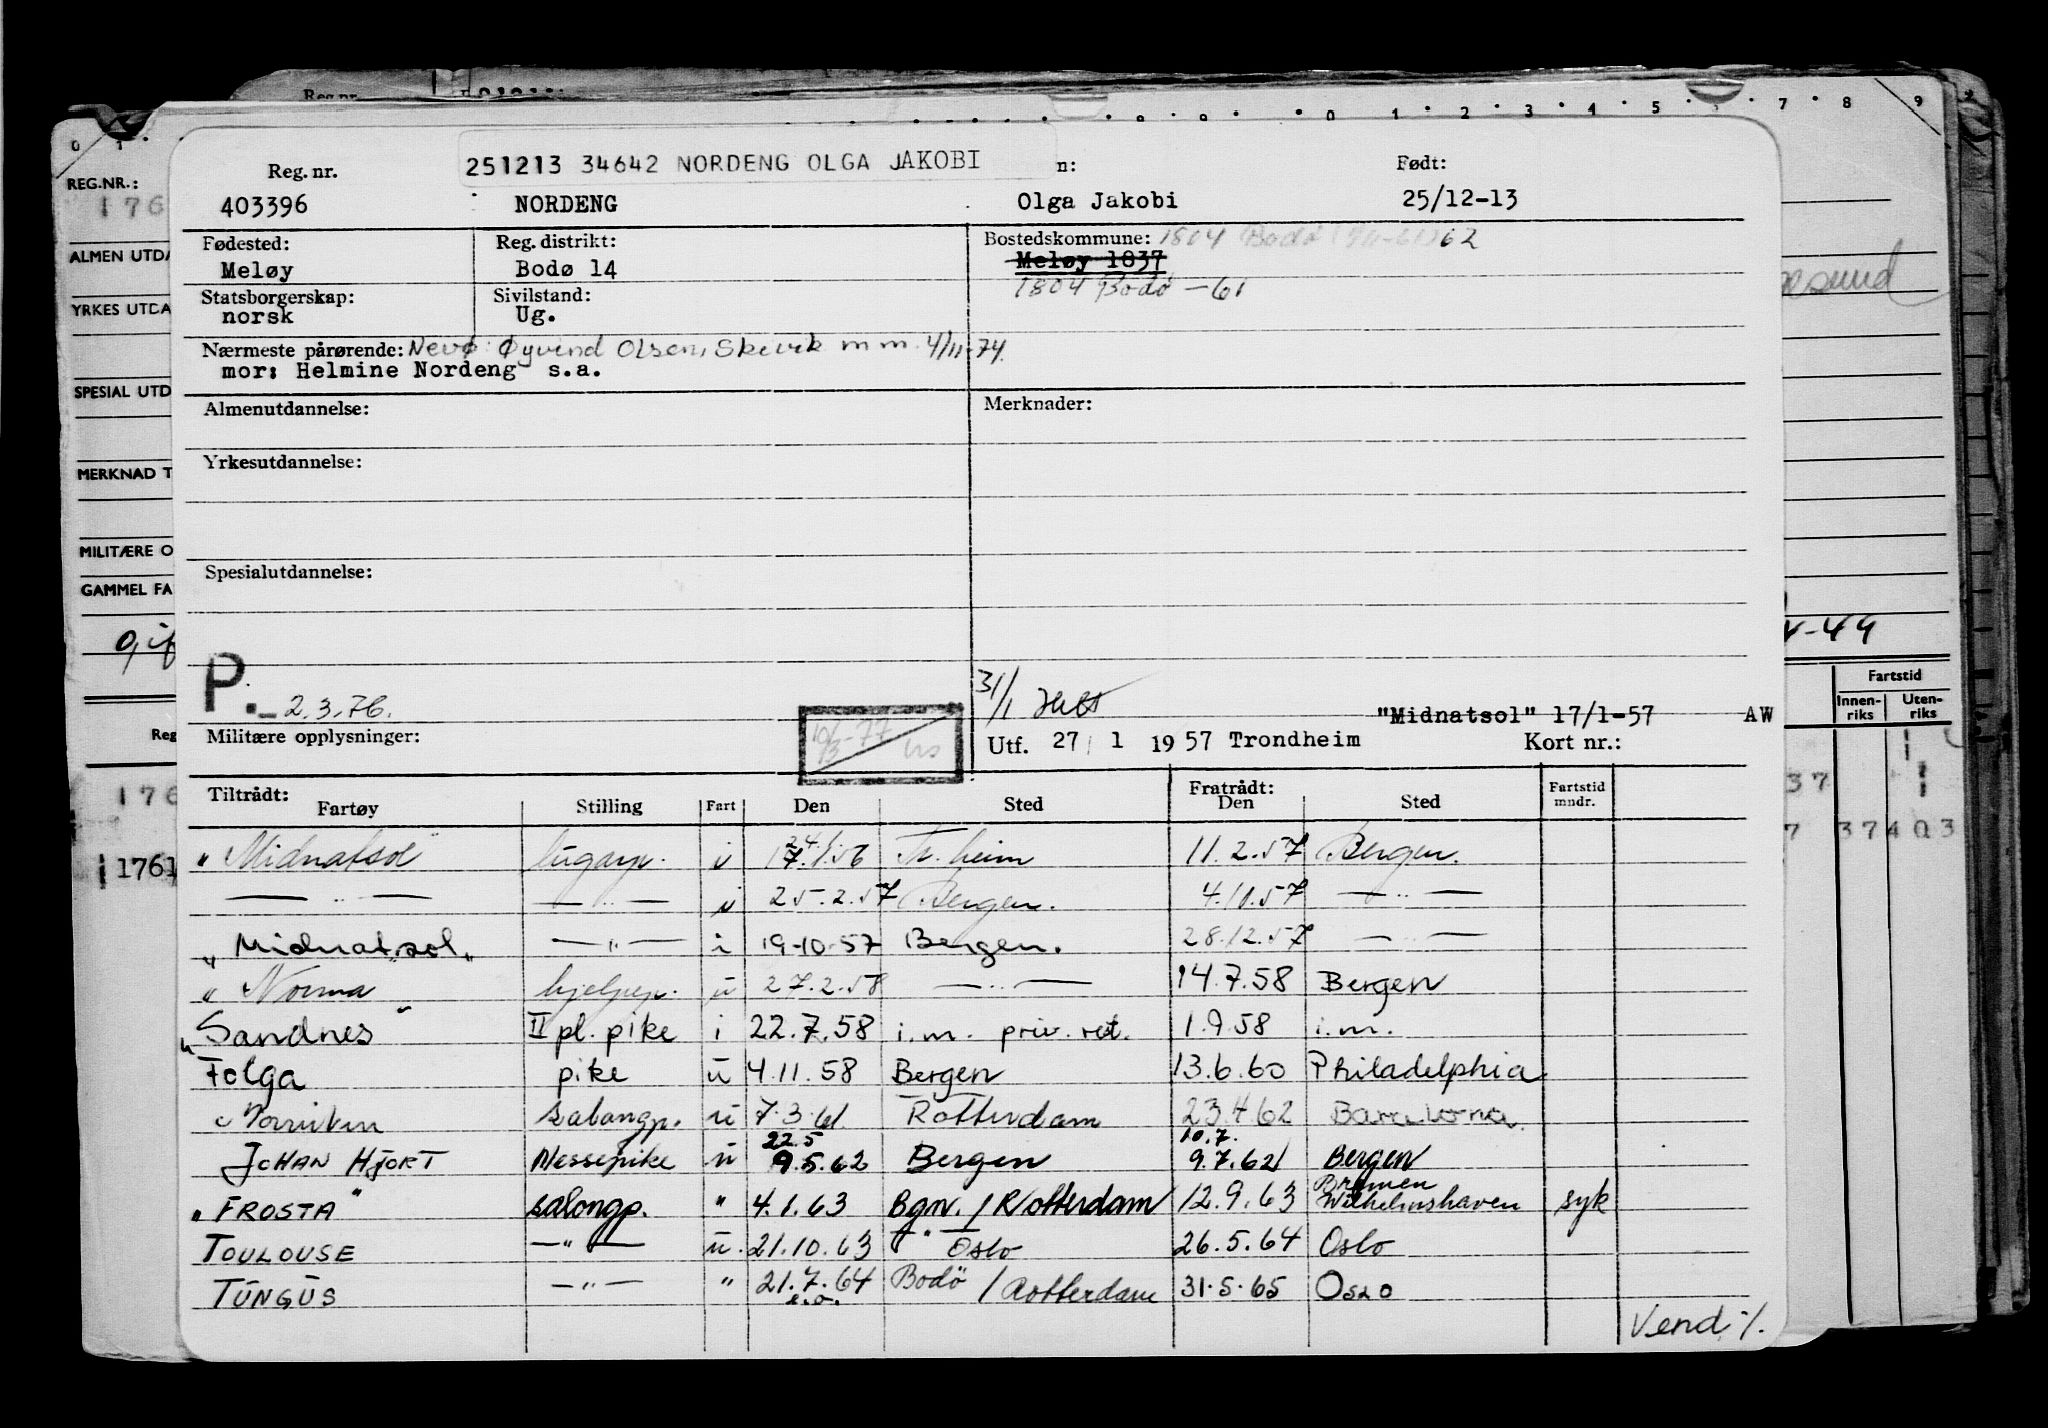 Reg.nr.
0 1 2 3 4 5 7 8 9
0 1
REG.NR.:
176
ALMEN UTDA
YRKES UTDA
SPESIAL UTD
MERKNAD T
MILITÆRE O
GAMMEL FA
Reg
176
1761
Reg. nr. 251213 34642 NORDENG OLGA JAKOBI n: Født:
403396 NORDENG Olga Jakobi 25/12-13
Fødested: Reg. distrikt: Bostedskommune: 1804 Bodø 62
Meløy Bodø 14 Meløy 1837
Statsborgerskap: Sivilstand: 1804 Bodø -61
norsk Ug.
Nærmeste pårørende: Nevø: Øyvind Olsen, Skevik m m. 4/11-74.
mor: Helmine Nordeng s.a.
Almenutdannelse: Merknader:
Yrkesutdannelse:
Spesialutdannelse:
P. - 2.3.76. 31/1 "Midnatsol" 17/1-57 AW
Militære opplysninger: Utf. 27/1 1957 Trondheim Kort nr.:
Tiltrådt: Fratrådt: Fartstid
Fartøy Stilling Fart Den Sted Den Sted mndr.
"Midnatsol" lugarp. i Tr.heim 11.2.57 Bergen.
— " — — " — i 25.2.57 Bergen. 4.10.57 — " —
"Midnatsol" — " — i 19-10-57 Bergen. 28.12.57 — " —
"Norma" hjelpep. u 27.2.58 — " — 14.7.58 Bergen
"Sandnes" II pl. pike i 22.7.58 i.m. priv. ret. 1.9.58 i.m.
Folga pike u 4.11.58 Bergen 13.6.60 Philadelphia
salongp. u 7.3.61 Rotterdam 23.4.62 Barcelona
22.5 10.7.
JOHAN HJORT Messepike u 9.5.62 Bergen 9.7.62 Bergen
Bremen
"FROSTA" salongp. " 4.1.63 Bgn./Rotterdam 12.9.63 Wilhelmshaven syk
TOULOUSE — " — u. 21.10.63 " Oslo 26.5.64 Oslo
TUNGUS — " — " 21.7.64 Bodø / Rotterdam 31.5.65 OSLO
Vend ./.
esund
-44
Fartstid
Innen-
riks Uten-
riks
37
7 37403